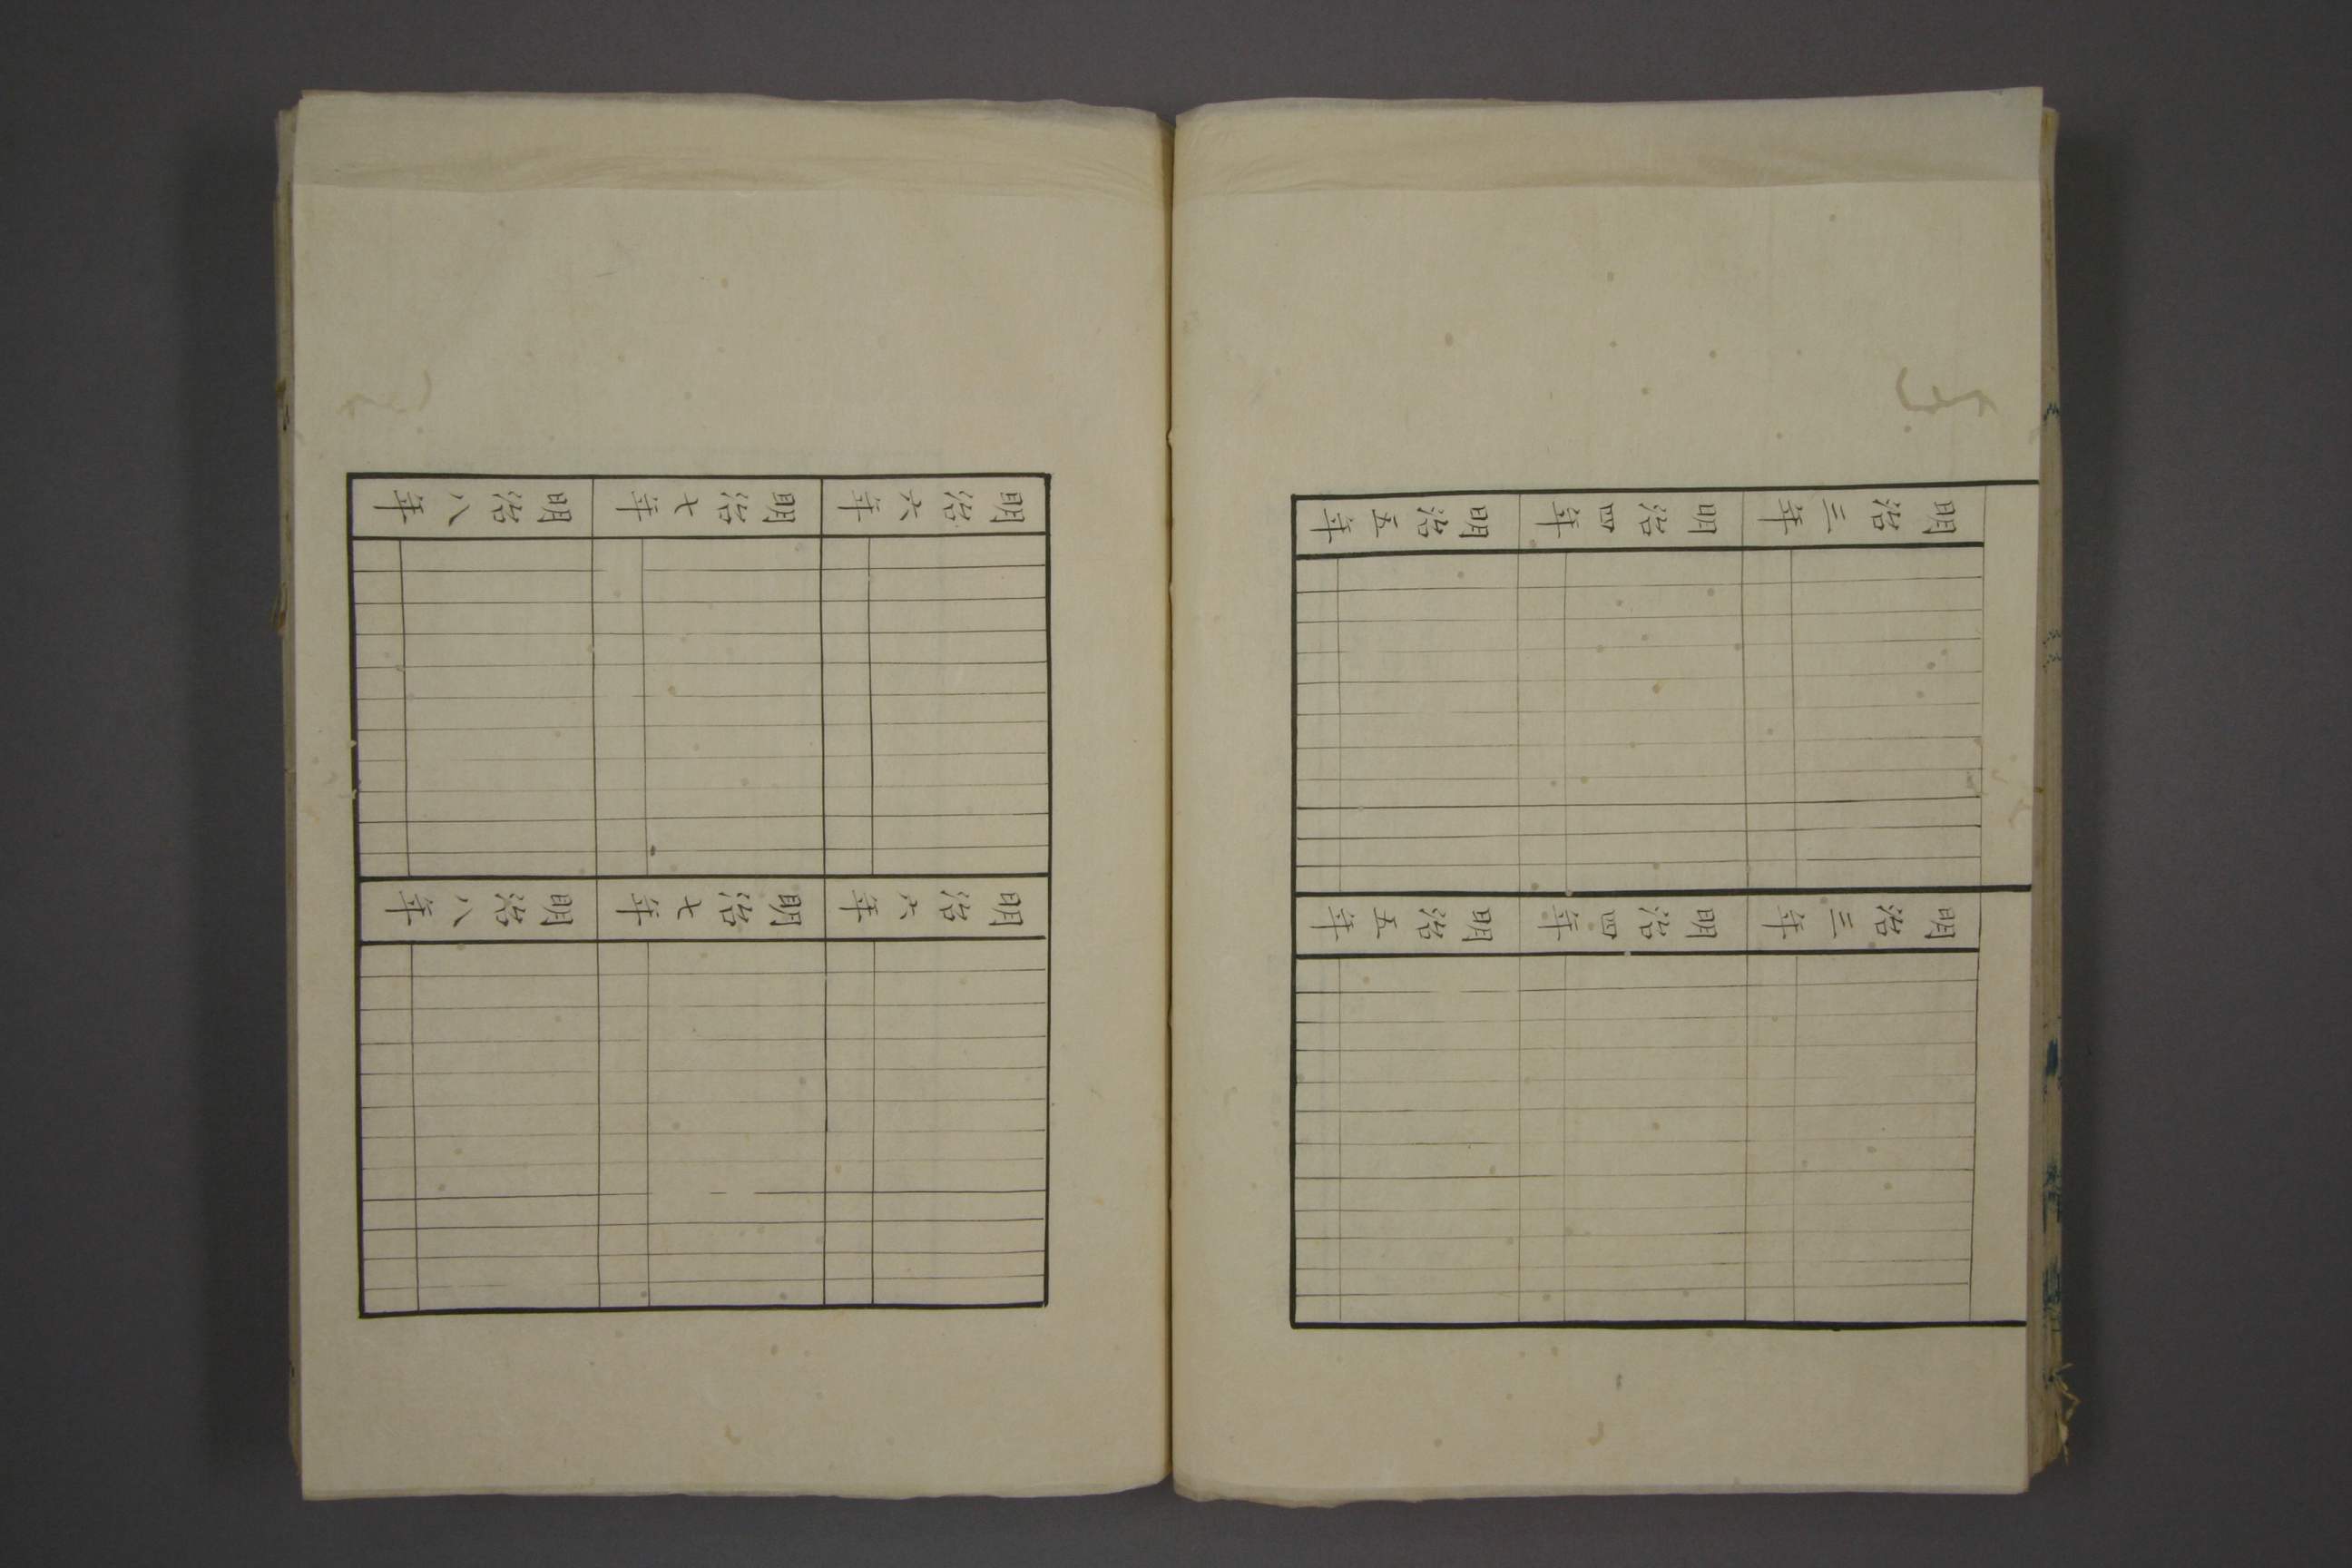 明治三年
明治四年
明治五年
明治三年
明治四年
明治五年
明治六年
明治七年
明治八年
明治六年
明治七年
明治八年